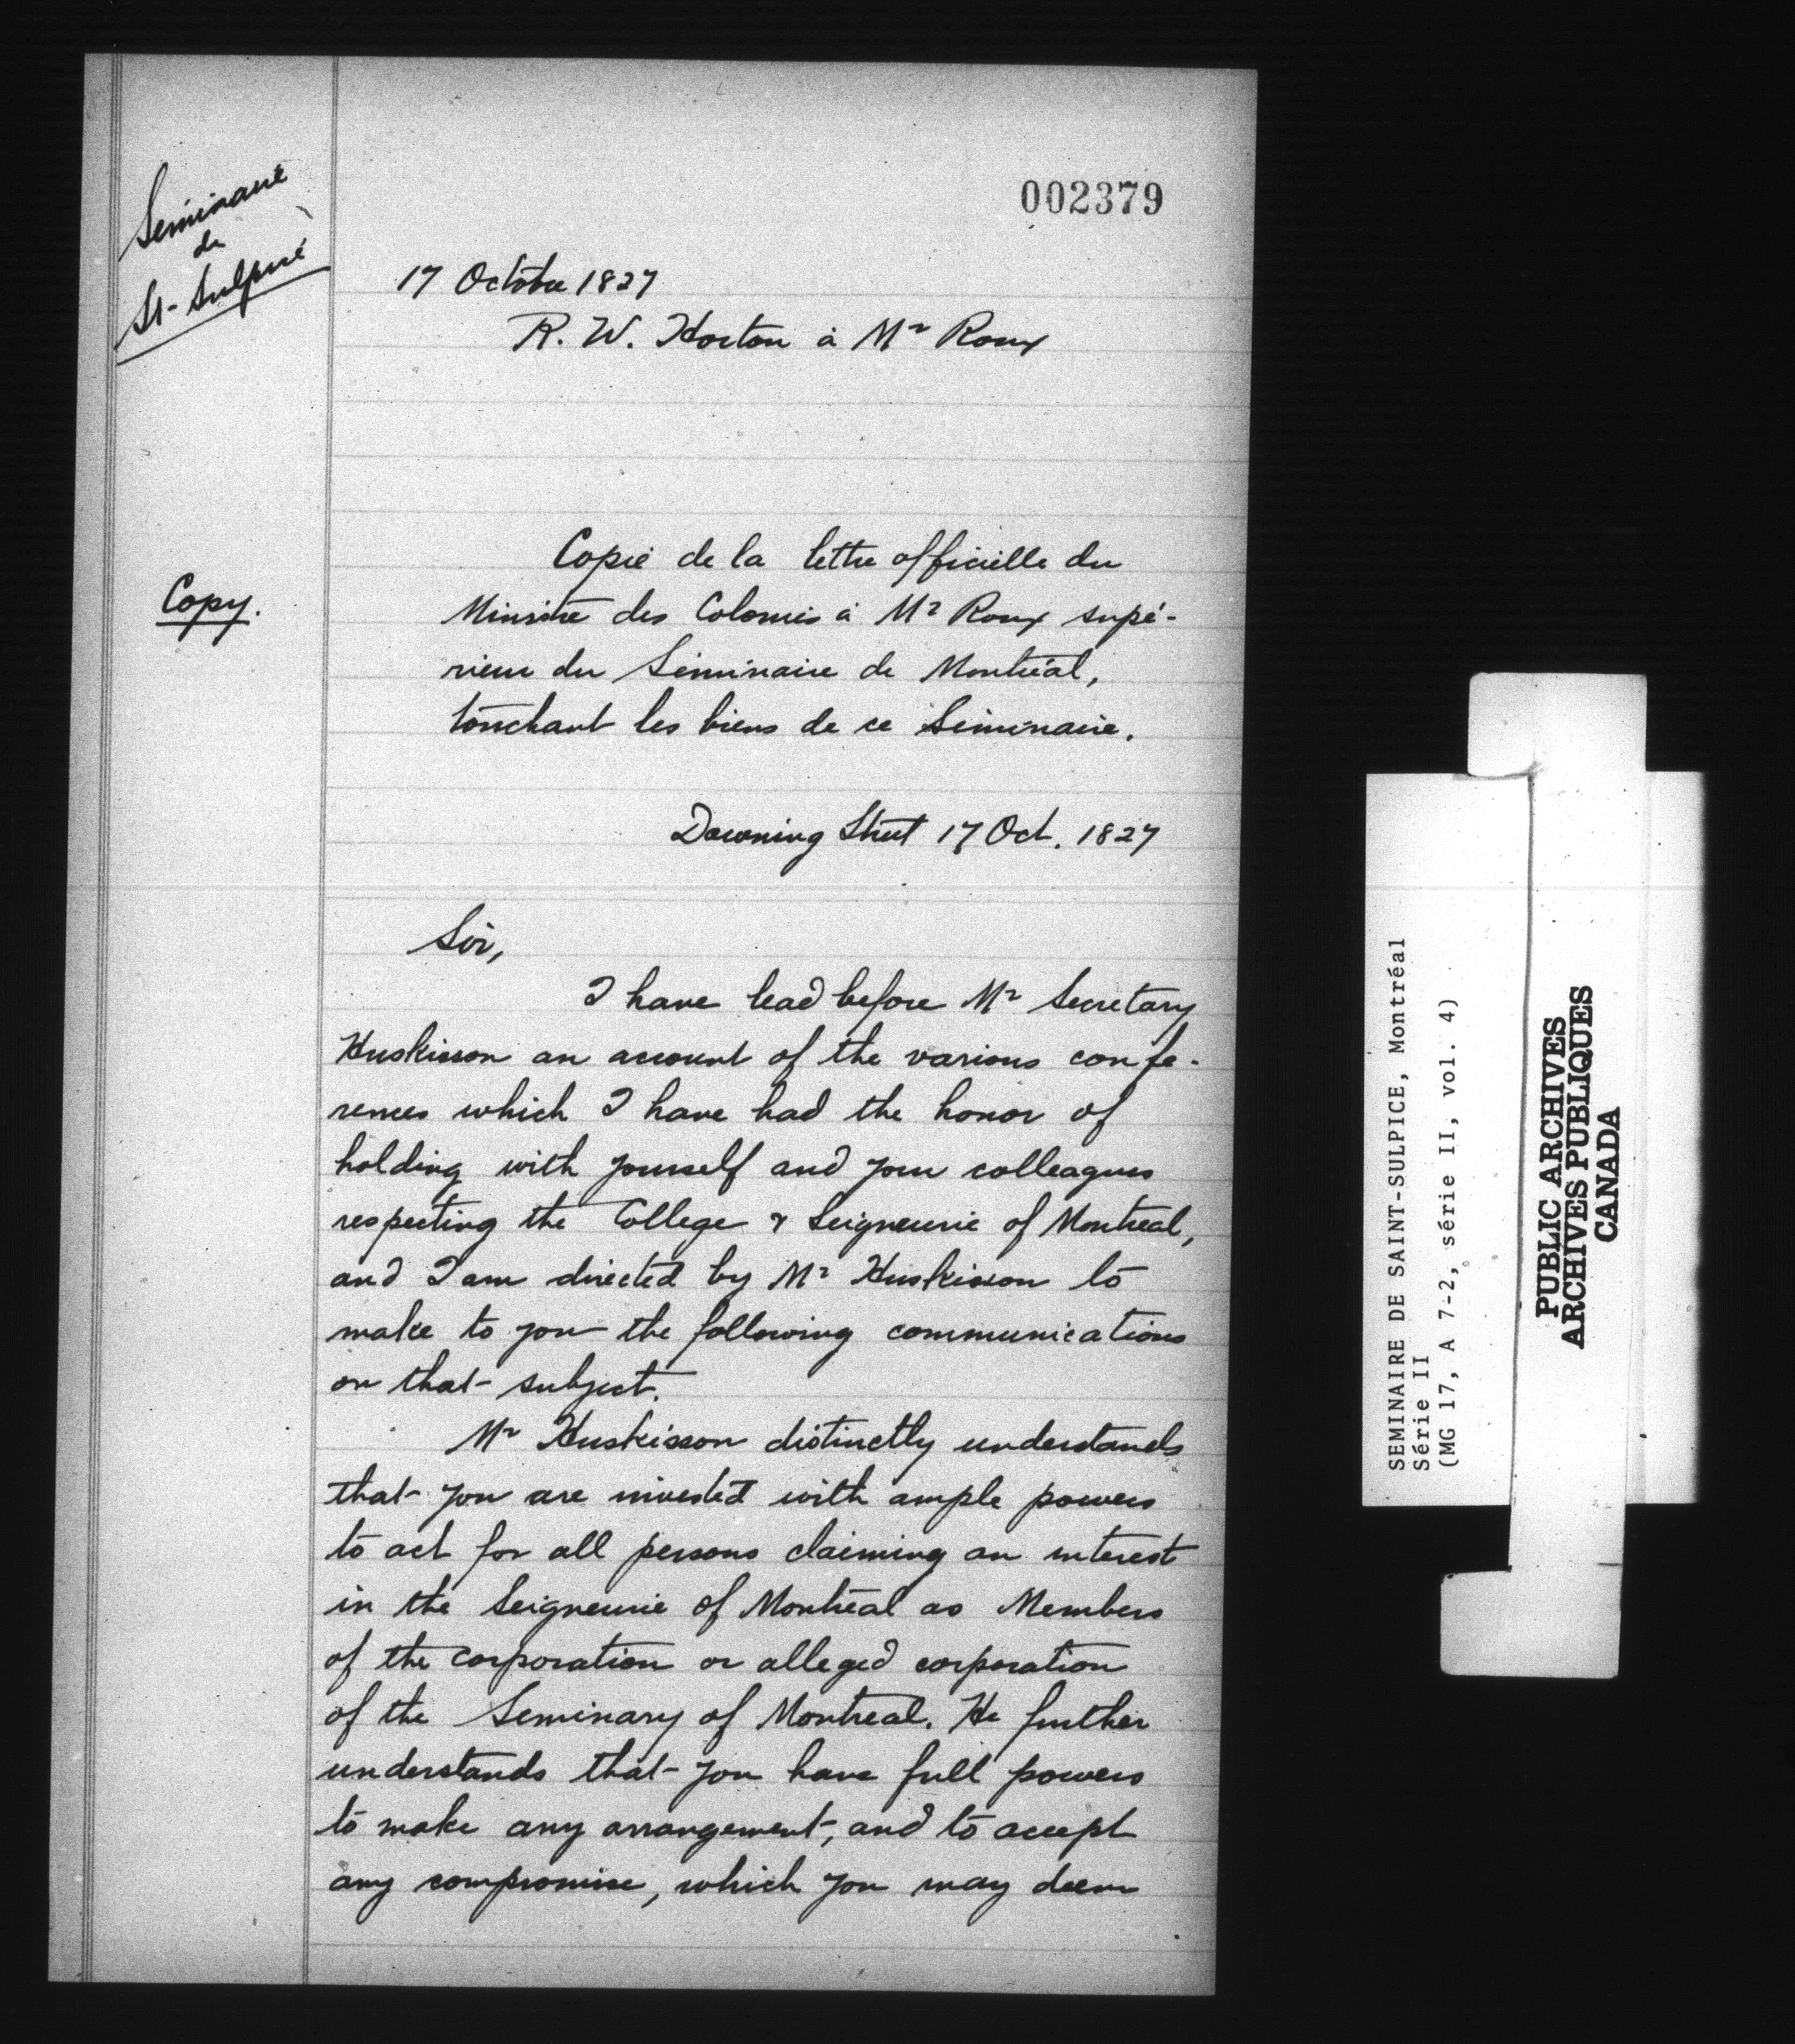 002379
Séminaire
de
St-Sulpice
17 Octobre 1827
R. W. Horton à Mr Roux
Copie de la lettre officielle du
Copy.
Ministre des Colonies à Mr Roux supé-
rieur du Séminaire de Montréal,
touchant les biens de ce Séminaire.
Downing Street 17 Oct. 1827
Sir,
I have lead before Mr Secretary
Huskisson an account of the various confe-
rences which I have had the honor of
holding with yourself and your colleagues
respecting the College & Seigneurie of Montreal,
and I am directed by Mr Huskisson to
make to you the following communications
on that subject.
Mr Huskisson distinctly understands
that you are invested with ample powers
to act for all persons claiming an interest
in the Seigneurie of Montreal as Members
of the corporation or alleged corporation
of the Seminary of Montreal. He further
understands that you have full powers
to make any arrangement, and to accept
any compromise, which you may deem
SEMINAIRE DE SAINT-SULPICE, Montréal
Série II
(MG 17, A 7-2, série II, vol. 4)
PUBLIC ARCHIVES
ARCHIVES PUBLIQUES
CANADA